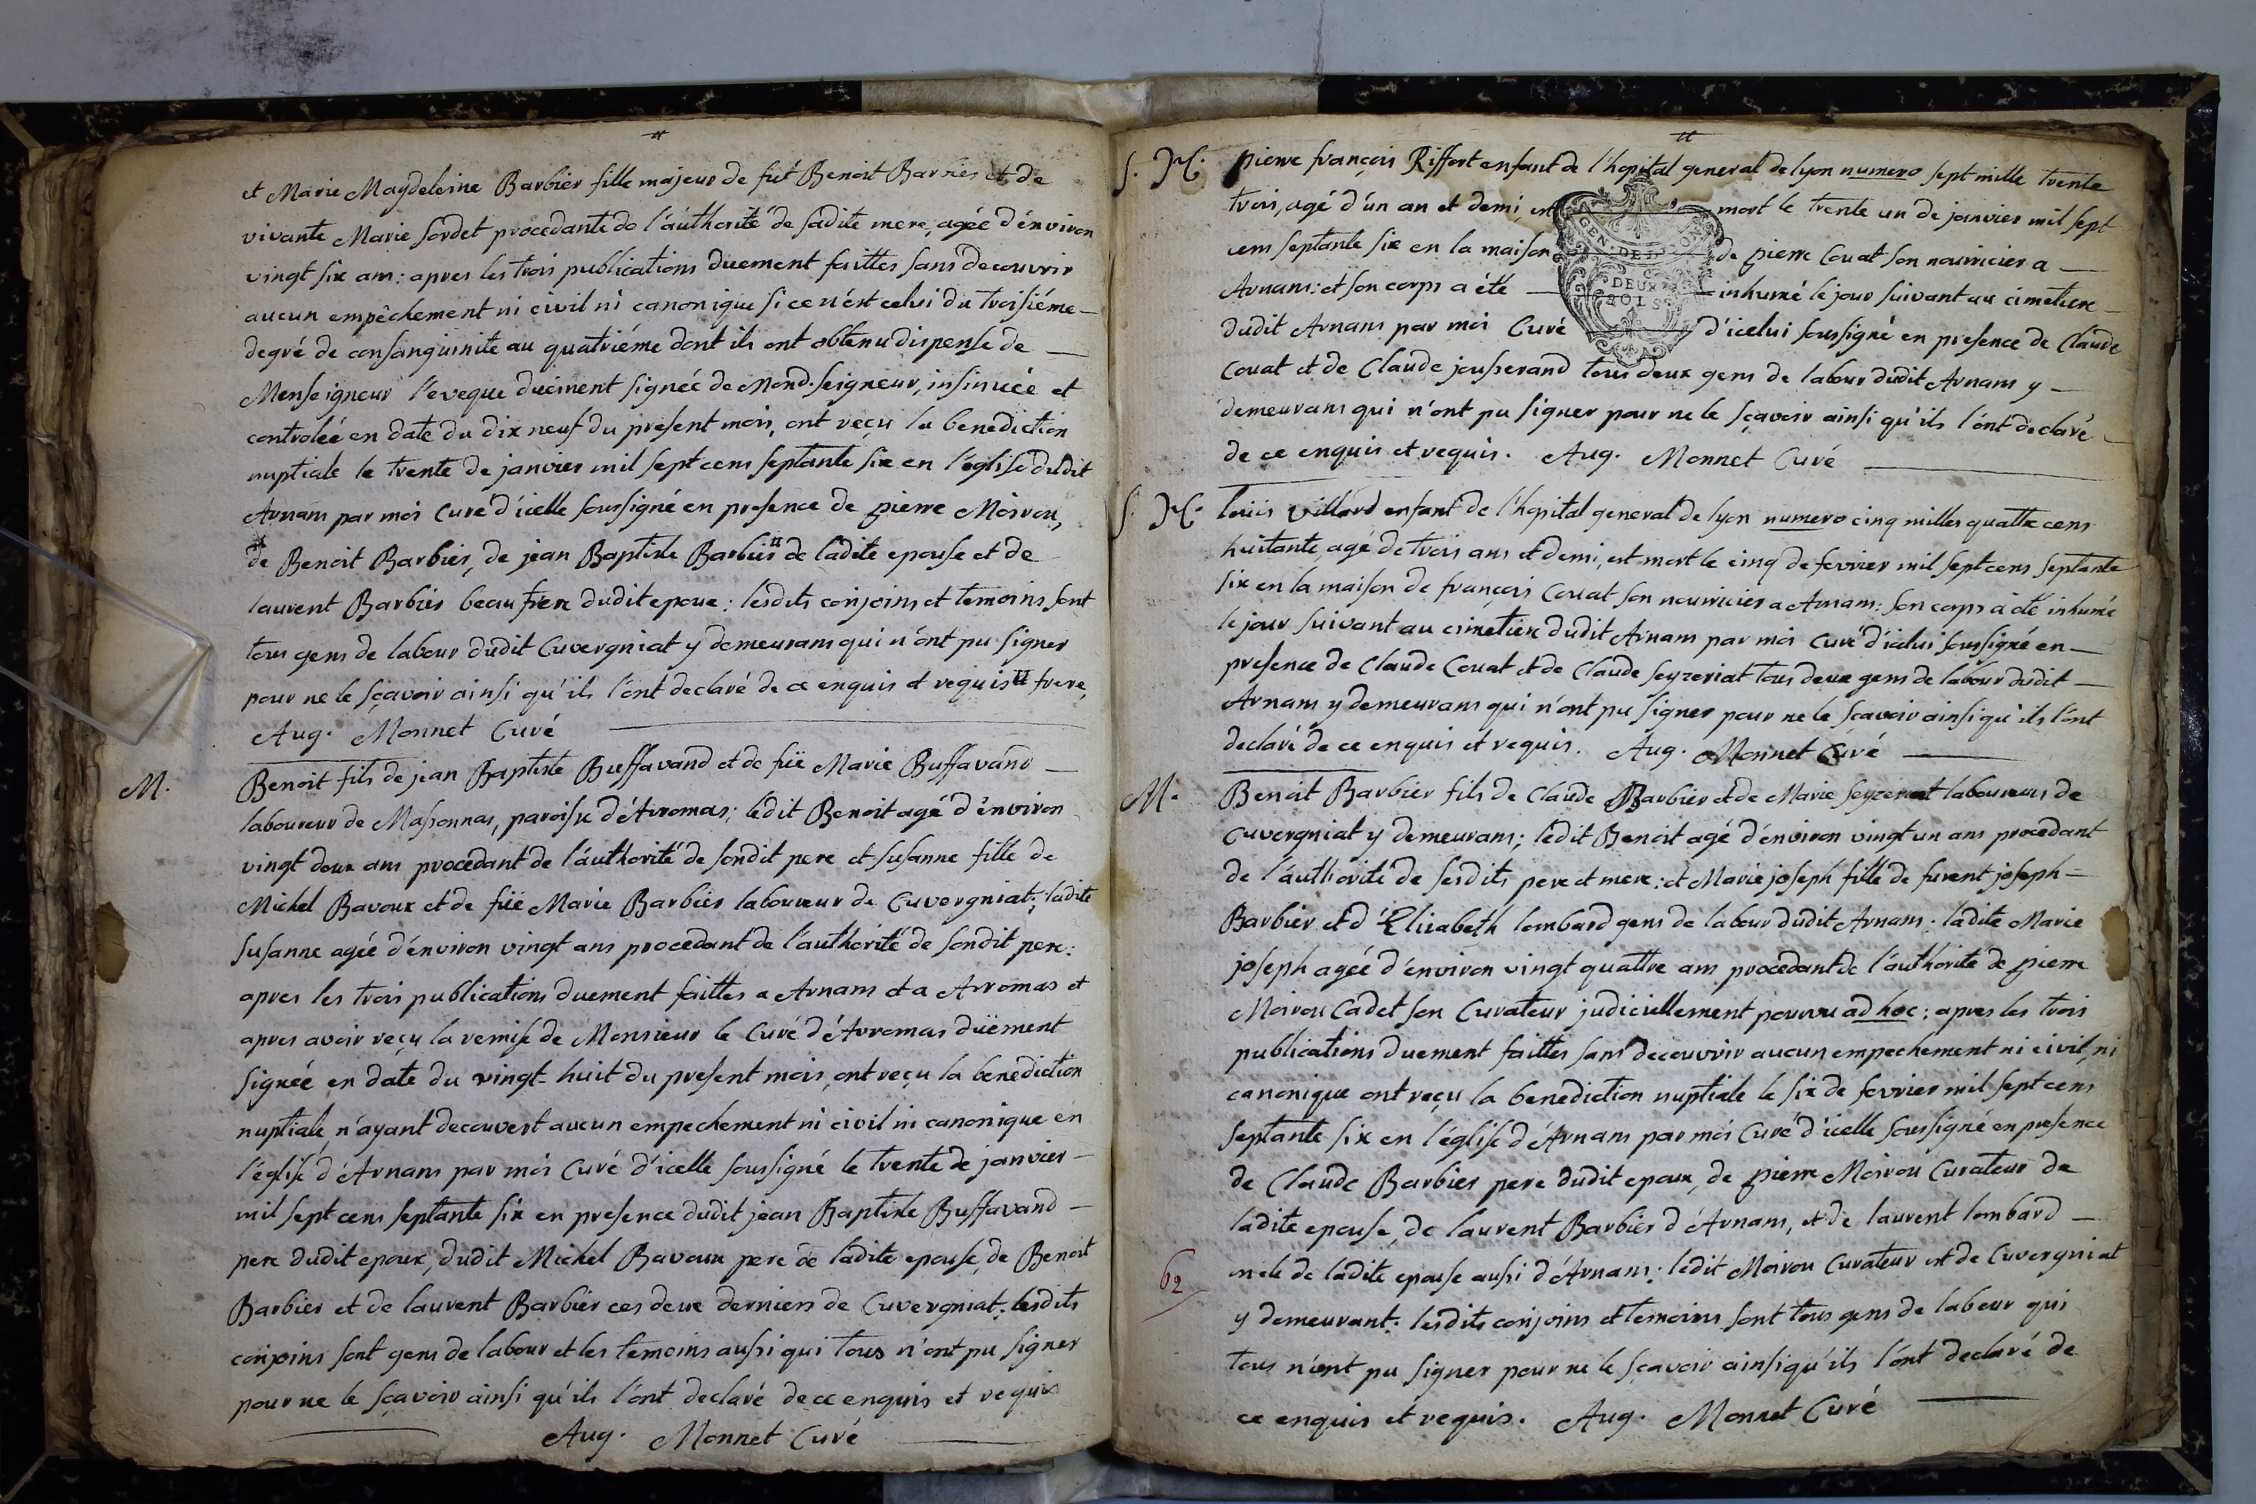 et Marie Magdeleine Barbier fille majeur de fut Benoit Barbier et de
vivante Marie Sordet procedante de l'authorité de sadite mere, agée d'environ
vingt six ans: apres les trois publications duement faittes sans decouvrir
aucun empêchement ni civil ni canonique si ce n'est celui du troisiéme
degré de consanguinité au quatriéme dont ils ont obtenu dispense de
Monseigneur l'eveque duëment signée de Mond. seigneur, insinuée et
controleé en date du dix neuf du present mois, ont reçu la benediction
nuptiale le trente de janvier mil sept cens septante six en l'église dudit
Arnans par moi Curé d'icelle soussigné en presence de pierre Moirou,
de Benoit Barbier, de jean Baptiste Barbier # de ladite epouse et de
laurent Barbier beau frere dudit epoue: lesdits conjoins et temoins sont
tous gens de labour dudit Cuvergniat y demeurans qui n'ont pu signer
pour ne le sçavoir ainsi qu'ils l'ont declaré de ce enquis et requis # frere,
Aug. Monnet Curé
M. Benoit fils de jean Baptiste Buffavand et de füe Marie Buffavand
laboureur de Massonnas, paroisse d'Arromas; ledit Benoit agé d'environ
vingt deux ans procedant de l'authorité de sondit pere et susanne fille de
Michel Bavoux et de füe Marie Barbier laboureur de Cuvergniat; ladite
susanne agée d'environ vingt ans procedant de l'authorité de sondit pere:
apres les trois publications duement faittes a Arnans et a Arromas et
apres avoir reçu la remise de Monsieur le Curé d'Arromas duëment
signée en date du vingt-huit du present mois, ont reçu la benediction
nuptiale, n'ayant decouvert aucun empechement ni civil ni canonique en
l'église d'Arnans par moi Curé d'icelle soussigné le trente de janvier
mil sept cens septante six en presence dudit jean Baptiste Buffavand
pere dudit epoux, dudit Michel Bavoux pere de ladite epouse, de Benoit
Barbier et de laurent Barbier ces deux derniers de Cuvergniat: lesdits
conjoins sont gens de labour et les temoins aussi qui tous n'ont pu signer
pour ne le sçavoir ainsi qu'ils l'ont declaré de ce enquis et requis
Aug. Monnet Curé
S. M. pierre françois Riffort enfant de l'hopital general de lyon numero sept mille trente
trois, agé d'un an et demi, est mort le trente un de janvier mil sept
cens septante six en la maison de pierre Couat son nourricier a
Arnans: et son corps a été inhumé le jour suivant au cimetiere
dudit Arnans par moi Curé d'icelui soussigné en presence de Claude
Couat et de Claude jousserand tous deux gens de labour dudit Arnans y
demeurans qui n'ont pu signer pour ne le sçavoir ainsi qu'ils l'ont declaré
de ce enquis et requis. Aug. Monnet Curé
GEN. DE
DEUX
SOLS
S. M. louis Villard enfant de l'hopital general de lyon numero cinq milles quattre cens
huitante, agé de trois ans et demi, est mort le cinq de fevrier mil sept cens septante
six en la maison de françois Couat son nourricier a Arnans: son corps a été inhumé
le jour suivant au cimetiere dudit Arnans par moi Curé d'icelui soussigné en
presence de Claude Couat et de Claude seyzeriat tous deux gens de labour dudit
Arnans y demeurans qui n'ont pu signer pour ne le sçavoir ainsi qu'ils l'ont
declaré de ce enquis et requis. Aug. Monnet Curé
M. Benoit Barbier fils de Claude Barbier et de Marie seyzeriat laboureurs de
Cuvergniat y demeurans; ledit Benoit agé d'environ vingt un ans procedant
de l'authorité de sesdits pere et mere: et Marie joseph fille de furent joseph
Barbier et d'Elisabeth lombard gens de labour dudit Arnans: ladite Marie
joseph agée d'environ vingt quattre ans procedant de l'authorité de pierre
Moirou Cadet son Curateur judiciellement pourvu ad hoc: apres les trois
publications duement faittes sans decouvrir aucun empechement ni civil, ni
canonique ont reçu la benediction nuptiale le six de fevrier mil sept cens
septante six en l'église d'Arnans par moi Curé d'icelle soussigné en presence
de Claude Barbier pere dudit epoux, de pierre Moirou Curateur de
ladite epouse, de laurent Barbier d'Arnans, et de laurent lombard
oncle de ladite epouse aussi d'Arnans: ledit Moirou Curateur est de Cuvergniat
62
y demeurant: lesdits conjoins et temoins sont tous gens de labour qui
tous n'ont pu signer pour ne le sçavoir ainsi qu'ils l'ont declaré de
ce enquis et requis. Aug. Monnet Curé